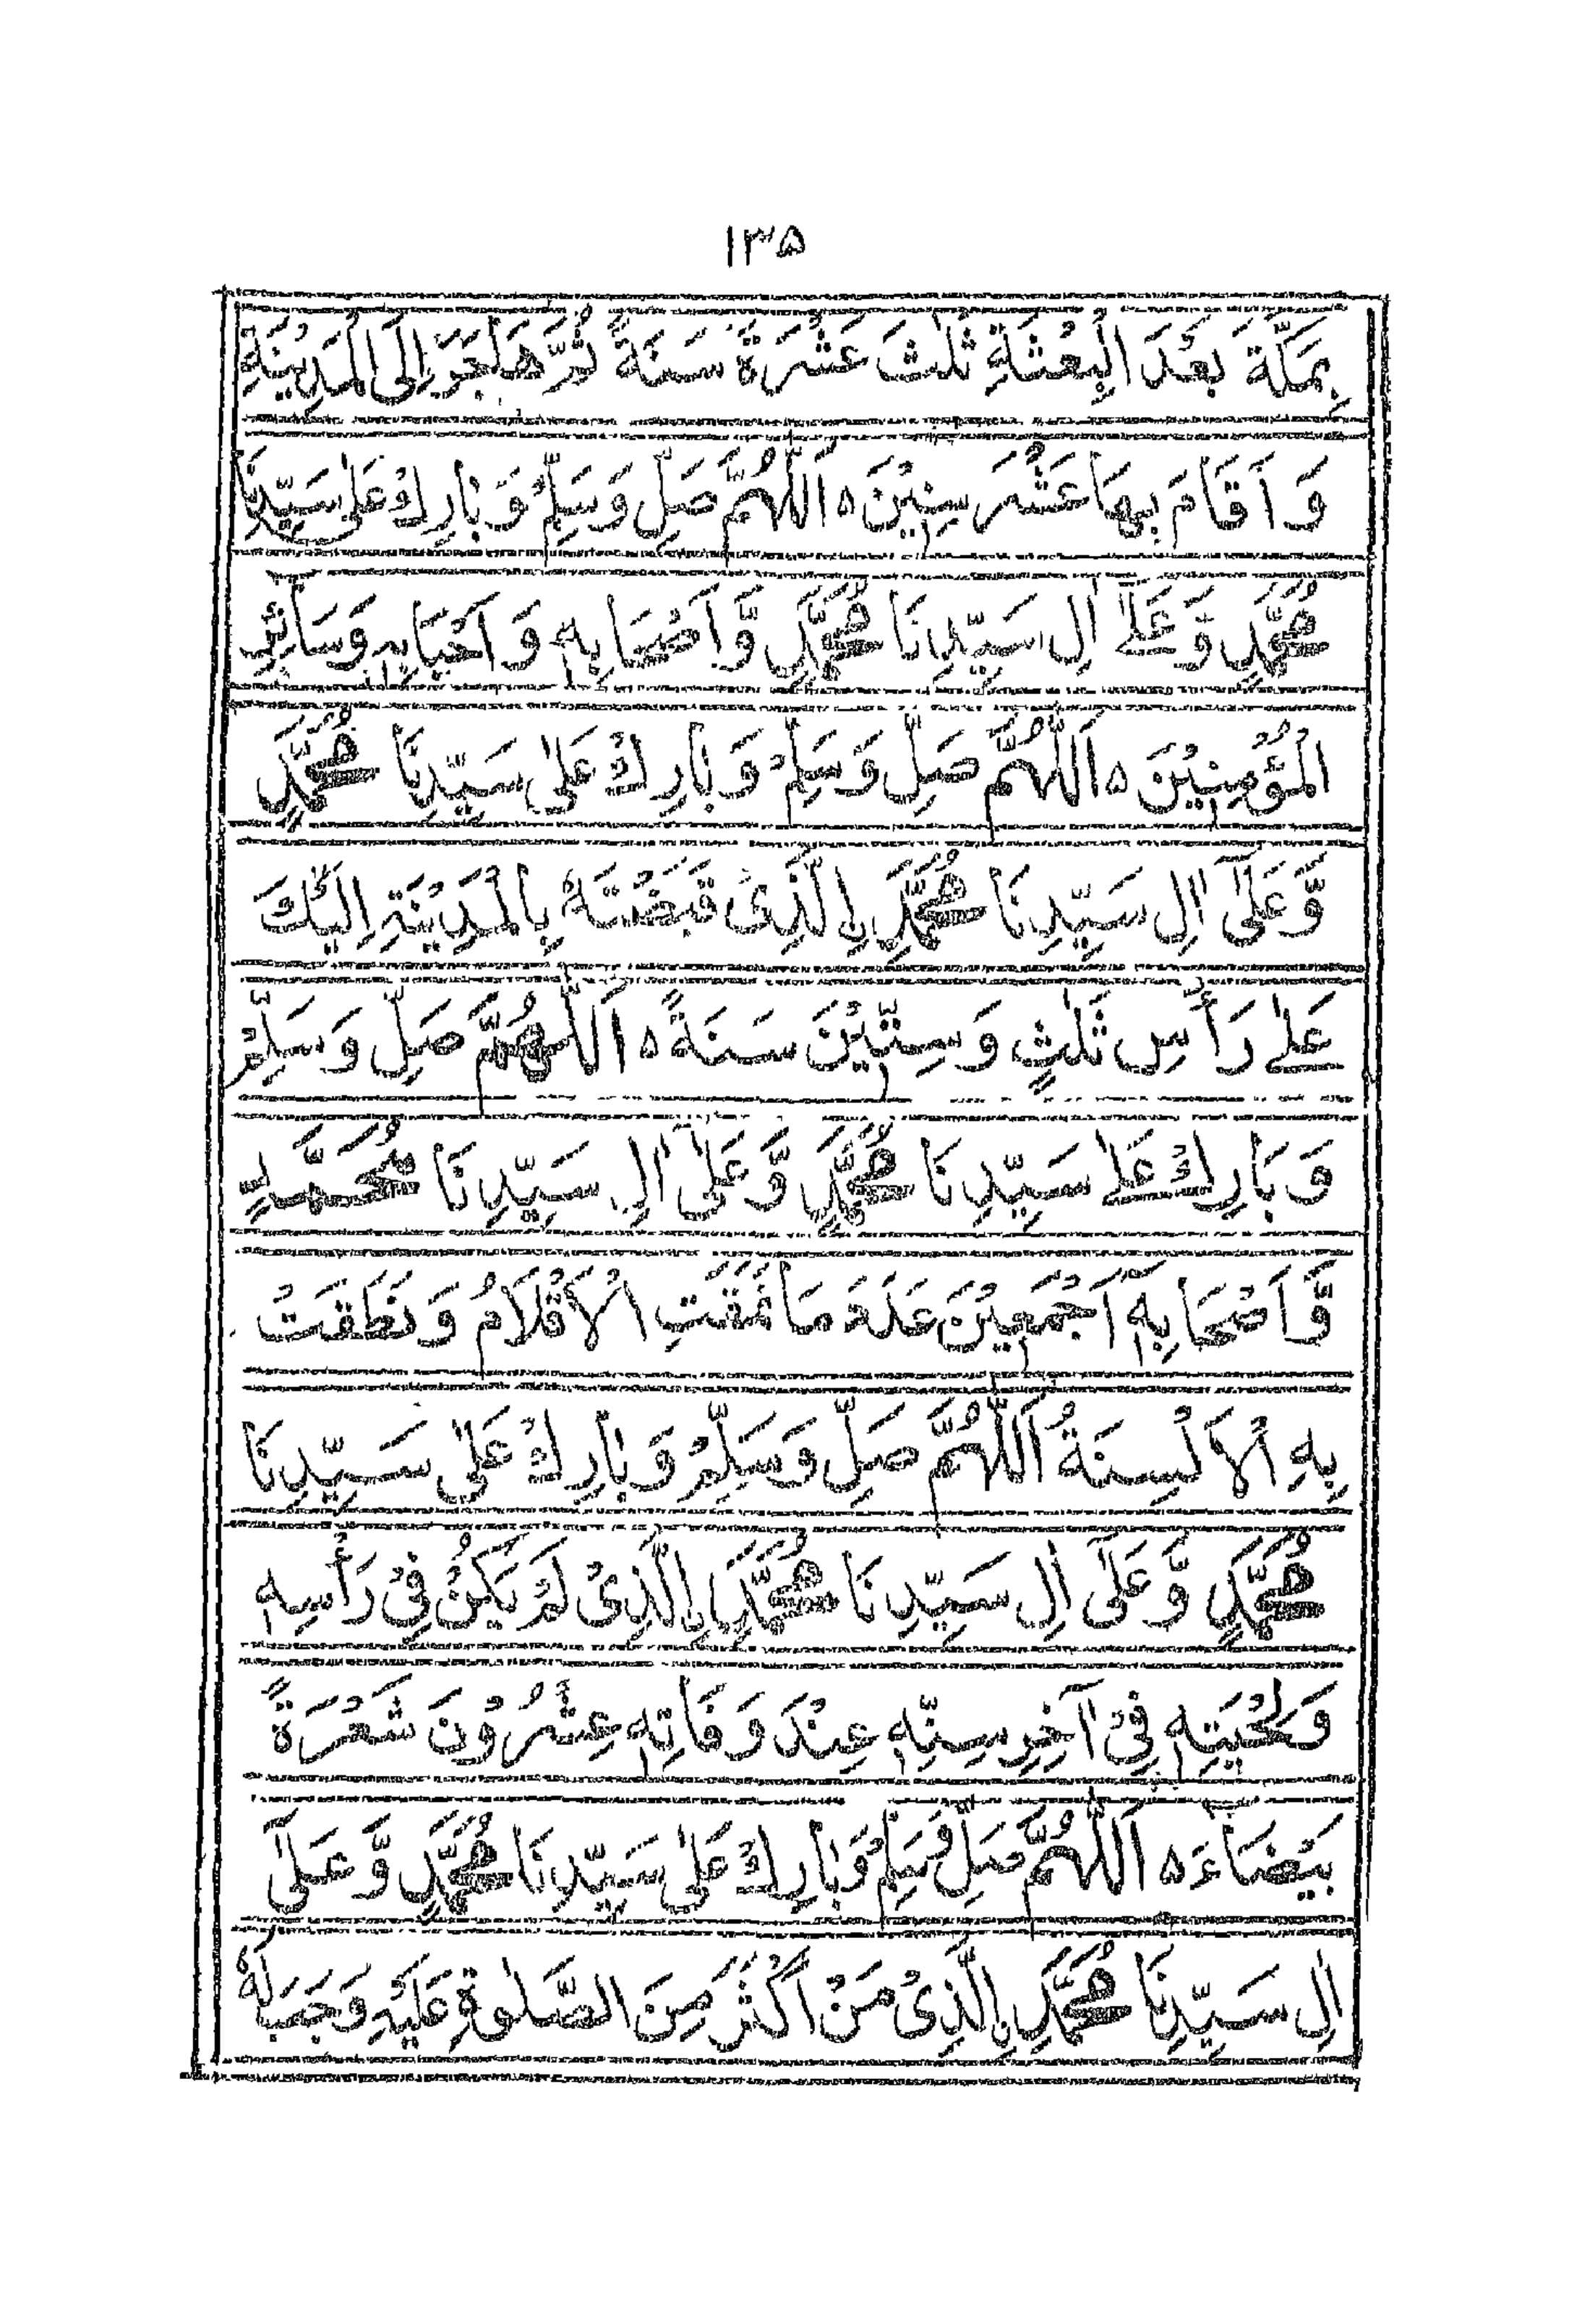 ۱۳۵
بِمَكَّةَ بَعْدَ الْبِعْثَةِ ثَلٰثَ عَشْرَةَ سَنَةً ثُمَّ هَاجَرَ اِلَى الْمَدِيْنَةِ
وَ اَقَامَ بِهَا عَشْرَ سِنِيْنَ ه اَللّٰهُمَّ صَلِّ وَسَلِّمْ وَ بَارِكْ عَلٰى سَيِّدِنَا
مُحَمَّدٍ وَّ عَلٰٓى اٰلِ سَيِّدِنَا مُحَمَّدٍ وَّ اَصْحَابِهٖ وَ اَحْبَابِهٖ وَسَائِرِ
الْمُؤْمِنِيْنَ ه اَللّٰهُمَّ صَلِّ وَسَلِّمْ وَ بَارِكْ عَلٰى سَيِّدِنَا مُحَمَّدٍ
وَّعَلٰٓى اٰلِ سَيِّدِنَا مُحَمَّدِ ۨالَّذِىْ قَبَضْتَهٗ بِالْمَدِيْنَةِ اِلَيْكَ
عَلٰى رَأْسِ ثَلٰثٍ وَسِتِّيْنَ سَنَةً ه اَللّٰهُمَّ صَلِّ وَسَلِّمْ
وَ بَارِكْ عَلٰى سَيِّدِنَا مُحَمَّدٍ وَّ عَلٰٓى اٰلِ سَيِّدِنَا مُحَمَّدٍ
وَّ اَصْحَابِهٖٓ اَجْمَعِيْنَ عَدَدَ مَا نَمَّقَتِ الْاَقْلَامُ وَ نَطَقَتْ
بِهِ الْاَلْسِنَةُ اَللّٰهُمَّ صَلِّ وَسَلِّمْ وَ بَارِكْ عَلٰى سَيِّدِنَا
مُحَمَّدٍ وَّ عَلٰٓى اٰلِ سَيِّدِنَا مُحَمَّدِ ۨالَّذِىْ لَمْ يَكُنْ فِىْ رَأْسِهٖ
وَ لِحْيَتِهٖ فِىْ اٰخِرِ سِنِّهٖ عِنْدَ وَفَاتِهٖ عِشْرُوْنَ شَعْرَةً
بَيْضَاءَ ه اَللّٰهُمَّ صَلِّ وَسَلِّمْ وَ بَارِكْ عَلٰى سَيِّدِنَا مُحَمَّدٍ وَّ عَلٰٓى
اٰلِ سَيِّدِنَا مُحَمَّدِ ۨالَّذِىْ مَنْ اَكْثَرَ مِنَ الصَّلٰوةِ عَلَيْهِ وَجَبَ لَهٗ